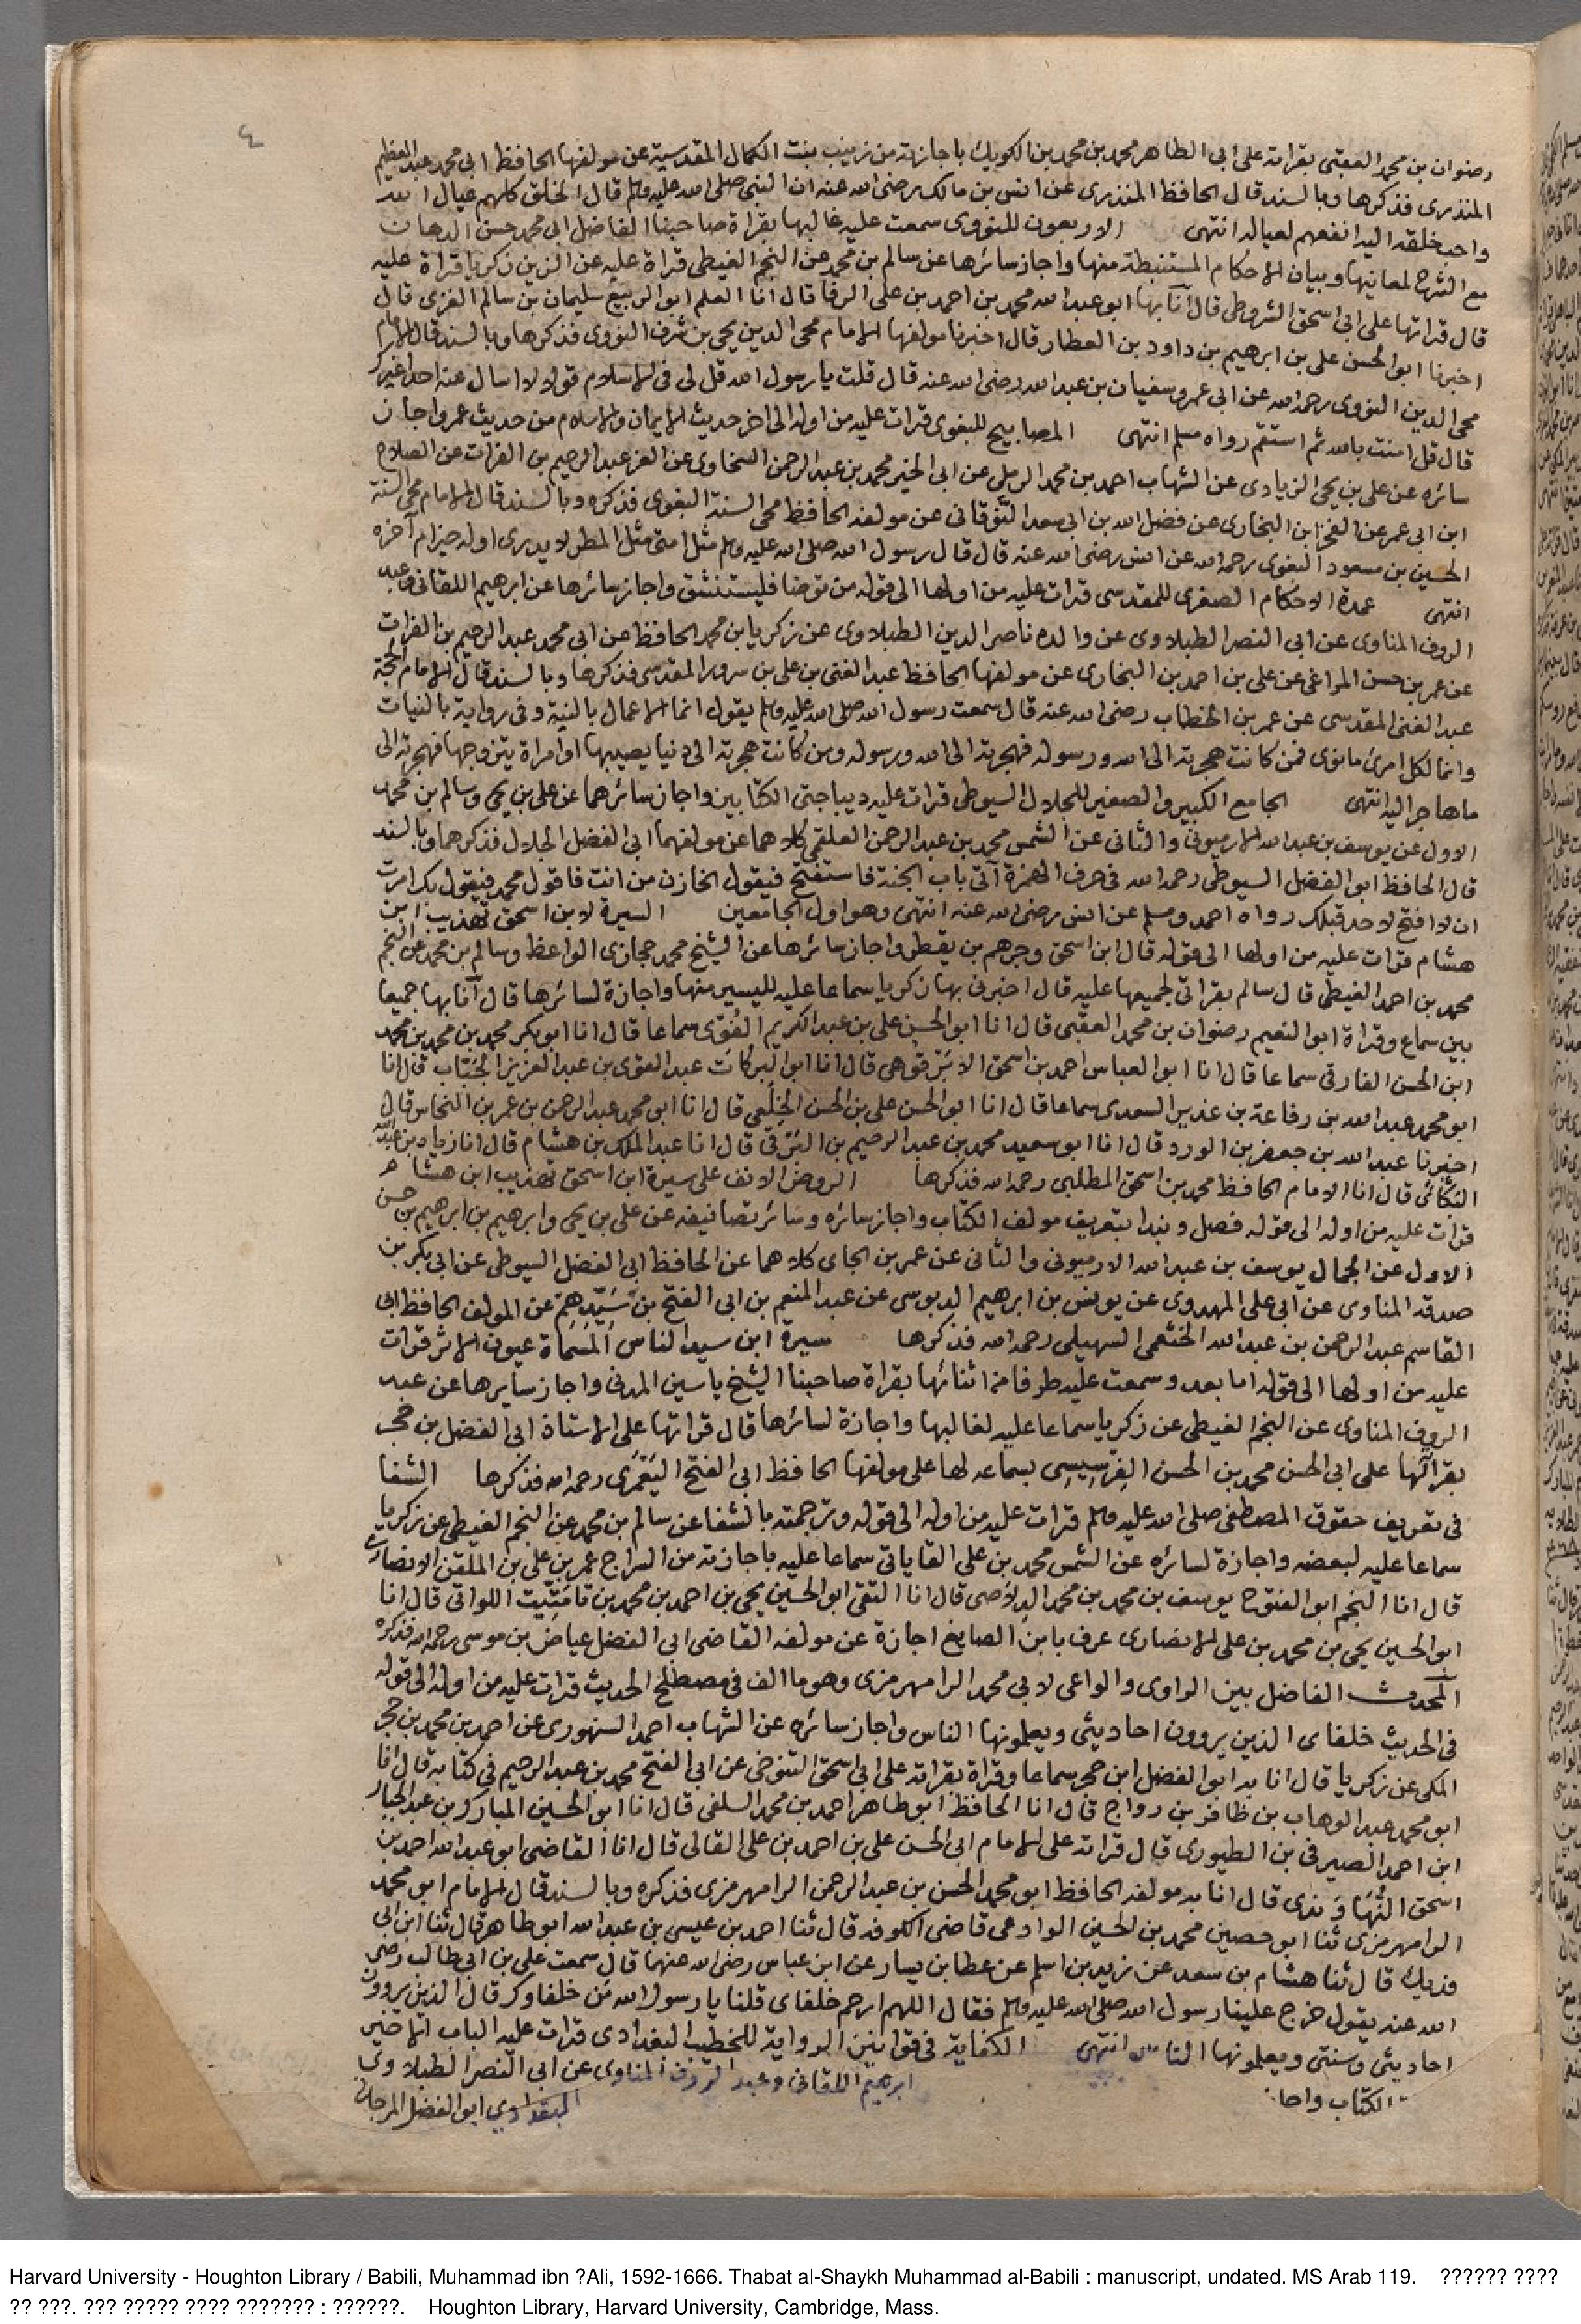 ٤
رضوان بن محمد العقبى بقراته على ابى الطاهر محمد بن محمد بن الكويك باجازته من زينب بنت الكمال المقدسية عن مولفها الحافظ ابى محمد عبد العظيم
المنذرى فذكرها وبالسند قال الحافظ المنذرى عن انس بن مالك رضى الله عنه ان النبى صلى الله عليه وسلم قال الخلق كلهم عيال الله
واحب خلقه اليه انفعهم لعياله انتهى الاربعون للنووى سمعت عليه غالبها بقراة صاحبنا الفاضل ابى محمد حسن الدهان
مع الشرح لمعانيها وبيان الاحكام المستنبطة منها واجاز سائرها عن سالم بن محمد عن النجم الغيطى قراة عليه عن الزين زكريا قراة عليه
قال قراتها على ابى اسحق الشروطى قال انا بها ابو عبد الله محمد بن احمد بن على الرفا قال انا العلم ابو الربيع سليمان بن سالم الغزى قال
اخبرنا ابو الحسن على بن ابرهيم بن داود بن العطار قال اخبرنا مولفها الامام محى الدين يحيى بن شرف النووى فذكرها وبالسند قال الامام
محى الدين النووى رحمه الله عن ابى عمرو سفيان بن عبد الله رضى الله عنه قال قلت يا رسول الله قل لى فى الاسلام قولا لا اسال عنه احدا غيرك
قال قل امنت بالله ثم استقم رواه مسلم انتهى المصابيح للبغوى قرات عليه من اوله الى اخر حديث الايمان والاسلام من حديث عمر واجاز
سائره عن على بن يحيى الزيادى عن الشهاب احمد بن محمد الرملى عن ابى الخير محمد بن عبد الرحمن السخاوى عن العز عبد الرحيم بن الفرات عن الصلاح
ابن ابى عمر عن الفخر ابن البخارى عن فضل الله بن ابى سعد النوقانى عن مولفه الحافظ محى السنة البغوى فذكره وبالسند قال الامام محى السنة
الحسين بن مسعود البغوى رحمه الله عن انس رضى الله عنه قال قال رسول الله صلى الله عليه وسلم مثل امتى مثل المطر لا يدرى اوله خير ام آخره
انتهى عمدة الاحكام الصغرى للمقدسى قرات عليه من اولها الى قوله من توضا فليستنشق واجاز سائرها عن ابرهيم اللقانى وعبد
الروف المناوى عن ابى النصر الطبلاوى عن والده ناصر الدين الطبلاوى عن زكريا بن محمد الحافظ عن ابى محمد عبد الرحيم بن الفرات
عن عمر بن حسن المراغى عن على بن احمد بن البخارى عن مولفها الحافظ عبد الغنى بن على بن سرور المقدسى فذكرها وبالسند قال الامام الحجة
عبد الغنى المقدسى عن عمر بن الخطاب رضى الله عنه قال سمعت رسول الله صلى الله عليه وسلم يقول انما الاعمال بالنية وفى رواية بالنيات
وانما لكل امرئ ما نوى فمن كانت هجرته الى الله ورسوله فهجرته الى الله ورسوله ومن كانت هجرته الى دنيا يصيبها او امراة يتزوجها فهجرته الى
ما هاجر اليه انتهى الجامع الكبير والصغير للجلال السيوطى قرات عليه ديباجتى الكتابين واجاز سائرهما عن على بن يحيى وسالم بن محمد
الاول عن يوسف بن عبد الله الارميونى والثانى عن الشمس محمد بن عبد الرحمن العلقمى كلاهما عن مولفهما ابى الفضل الجلال فذكرهما وبالسند
قال الحافظ ابو الفضل السيوطى رحمه الله فى حرف الهمزة آتى باب الجنة فاستفتح فيقول الخازن من انت فاقول محمد فيقول بك امرت
ان لا افتح لاحد قبلك رواه احمد ومسلم عن انس رضى الله عنه انتهى وهو اول الجامعين السيرة لابن اسحق تهذيب ابن
هشام قرات عليه من اولها الى قوله قال ابن اسحق وجرهم بن يقطن واجاز سائرها عن الشيخ محمد حجازى الواعظ وسالم بن محمد عن النجم
محمد بن احمد الغيطى قال سالم بقراتى لجميعها عليه قال اخبرنى بها زكريا سماعا عليه لليسير منها واجازة لسائرها قال انا بها جميعا
بين سماع وقراة ابو النعيم رضوان بن محمد العقبى قال انا ابو الحسن على بن عبد الكريم الفُوّى سماعا قال انا ابو بكر محمد بن محمد بن محمد
ابن الحسن الفارقى سماعا قال انا ابو العباس احمد بن اسحق الابَرْقُوهى قال انا ابو البركات عبد القوى بن عبد العزيز الجَبّاب قال انا
ابو محمد عبد الله بن رفاعة بن غدير السعدى سماعا قال انا ابو الحسن على بن الحسن الخِلَعى قال انا ابو محمد عبد الرحمن بن عمر بن النحاس قال
اخبرنا عبد الله بن جعفر بن الورد قال انا ابو سعيد محمد بن عبد الرحيم بن البَرْقى قال انا عبد الملك بن هشام قال انا زياد بن عبد الله
البَكّائى قال انا الامام الحافظ محمد بن اسحق المطلبى رحمه الله فذكرها الروض الانف على سيرة ابن اسحق تهذيب ابن هشام
قرات عليه من اوله الى قوله فصل ونبدا بتعريف مولف الكتاب واجاز سائره وسائر تصانيفه عن على بن يحيى وابرهيم بن ابرهيم بن حسن
الاول عن الجمال يوسف بن عبد الله الارميونى والثانى عن عمر بن الجاى كلاهما عن الحافظ ابى الفضل السيوطى عن ابى بكر بن
صدقه المناوى عن ابى على المهدوى عن يونس بن ابرهيم الدبوسى عن عبد المنعم بن ابى الفتح بن سَيّدِهم عن المولف الحافظ ابى
القاسم عبد الرحمن بن عبد الله الخثعمى السهيلى رحمه الله فذكرها سيرة ابن سيد الناس المسماة عيون الاثر قرات
عليه من اولها الى قوله اما بعد وسمعت عليه طرفا من اثنائها بقراة صاحبنا الشيخ ياسين المدنى واجاز سايرها عن عبد
الروف المناوى عن النجم الغيطى عن زكريا سماعا عليه لغالبها واجازة لسائرها قال قراتها على الاستاذ ابى الفضل بن حجر
بقراته لها على ابى الحسن محمد بن الحسن الفِرْسِيسِى بسماعه لها على مولفها الحافظ ابى الفتح اليَعْمَرى رحمه الله فذكرها الشفا
فى تعريف حقوق المصطفى صلى الله عليه وسلم قرات عليه من اوله الى قوله وترجمته بالشفا عن سالم بن محمد عن النجم الغيطى عن زكريا
سماعا عليه لبعضه واجازة لسائره عن الشمس محمد بن على القاياتى سماعا عليه باجازته من السراج عمر بن على بن الملقن الانصارى
قال انا النجم ابو الفتوح يوسف بن محمد بن محمد الدِلاصى قال انا التقى ابو الحسين يحيى بن احمد بن محمد بن تامَتّيت اللواتى قال انا
ابو الحسين يحيى بن محمد بن على الانصارى عرف بابن الصايغ اجازة عن مولفه القاضى ابى الفضل عياض بن موسى رحمه الله فذكره
المحدث الفاضل بين الراوى والواعى لابى محمد الرامهرمزى وهو ما الف فى مصطلح الحديث قرات عليه من اوله الى قوله
فى الحديث خلفاى الذين يروون احاديثى ويعلمونها الناس واجاز سائره عن الشهاب احمد السنهورى عن احمد بن محمد بن حجر
المكى عن زكريا قال انا به ابو الفضل ابن حجر سماعا وقراة بقراته على ابى اسحق التنوخى عن ابى الفتح محمد بن عبد الرحيم فى كتابه قال انا
ابو محمد عبد الوهاب بن ظافر بن رواج قال انا الحافظ ابو طاهر احمد بن محمد السلفى قال انا ابو الحسين المبارك بن عبد الجبار
ابن احمد الصيرفى بن الطيورى قال قرات على الامام ابى الحسن على بن احمد بن على الفالى قال انا القاضى ابو عبد الله احمد بن
اسحق النُّهَاوَندى قال انا به مولفه الحافظ ابو محمد الحسن بن عبد الرحمن الرامهرمزى فذكره وبالسند قال الامام ابو محمد
الرامهرمزى ثنا ابو حصين محمد بن الحسين الوادعى قاضى الكوفه قال ثنا احمد بن عيسى بن عبد الله ابو طاهر قال ثنا ابن ابى
فديك قال ثنا هشام بن سعد عن زيد بن اسلم عن عطا بن يسار عن ابن عباس رضى الله عنهما قال سمعت على بن ابى طالب رضى
الله عنه يقول خرج علينا رسول الله صلى الله عليه وسلم فقال اللهم ارحم خلفاى قلنا يا رسول الله من خلفاوك قال الذين يروون
احاديثى وسنتى ويعلمونها الناس انتهى الكفاية فى قوانين الرواية للخطيب البغدادى قرات عليه الباب الاخير
الكتاب واجا ابرهيم اللقانى وعبد الروف المناوى عن ابى النصر الطبلاوى
ابو الفضل المرجانى
Harvard University - Houghton Library / Babili, Muhammad ibn ?Ali, 1592-1666. Thabat al-Shaykh Muhammad al-Babili : manuscript, undated. MS Arab 119. ?????? ????
?? ???. ??? ????? ???? ??????? : ??????. Houghton Library, Harvard University, Cambridge, Mass.